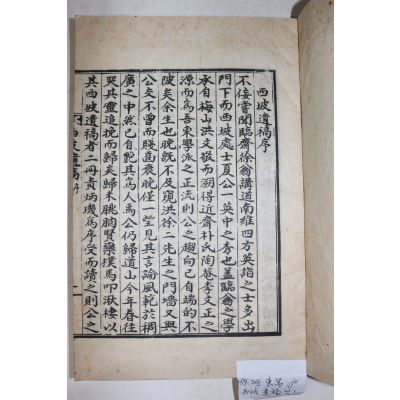 西坡遺稿序
不佞嘗聞臨齋徐翁講道南維四方英詣之士多出
門下而西坡處士夏公一英中之秀也盖臨翁之學
承自梅山洪文敬而溯得近齋朴氏陶菴李文正之
源而爲吾東學派之正流則公之趨向已自端的不
陂矣余生也晩旣不及覿洪徐二先生之門墻又與
公交不曾而晩僅一望見其言論風範於稠
廣之中然已自艶其爲人焉公仍歸道山今年春往
哭其靈追挽而歸矣歸未朓朒賢欒樸焉叩湫棲以
其西坡遺稿者二冊責炳璣爲序受而讀之則公之
西坡遺稿 序 一